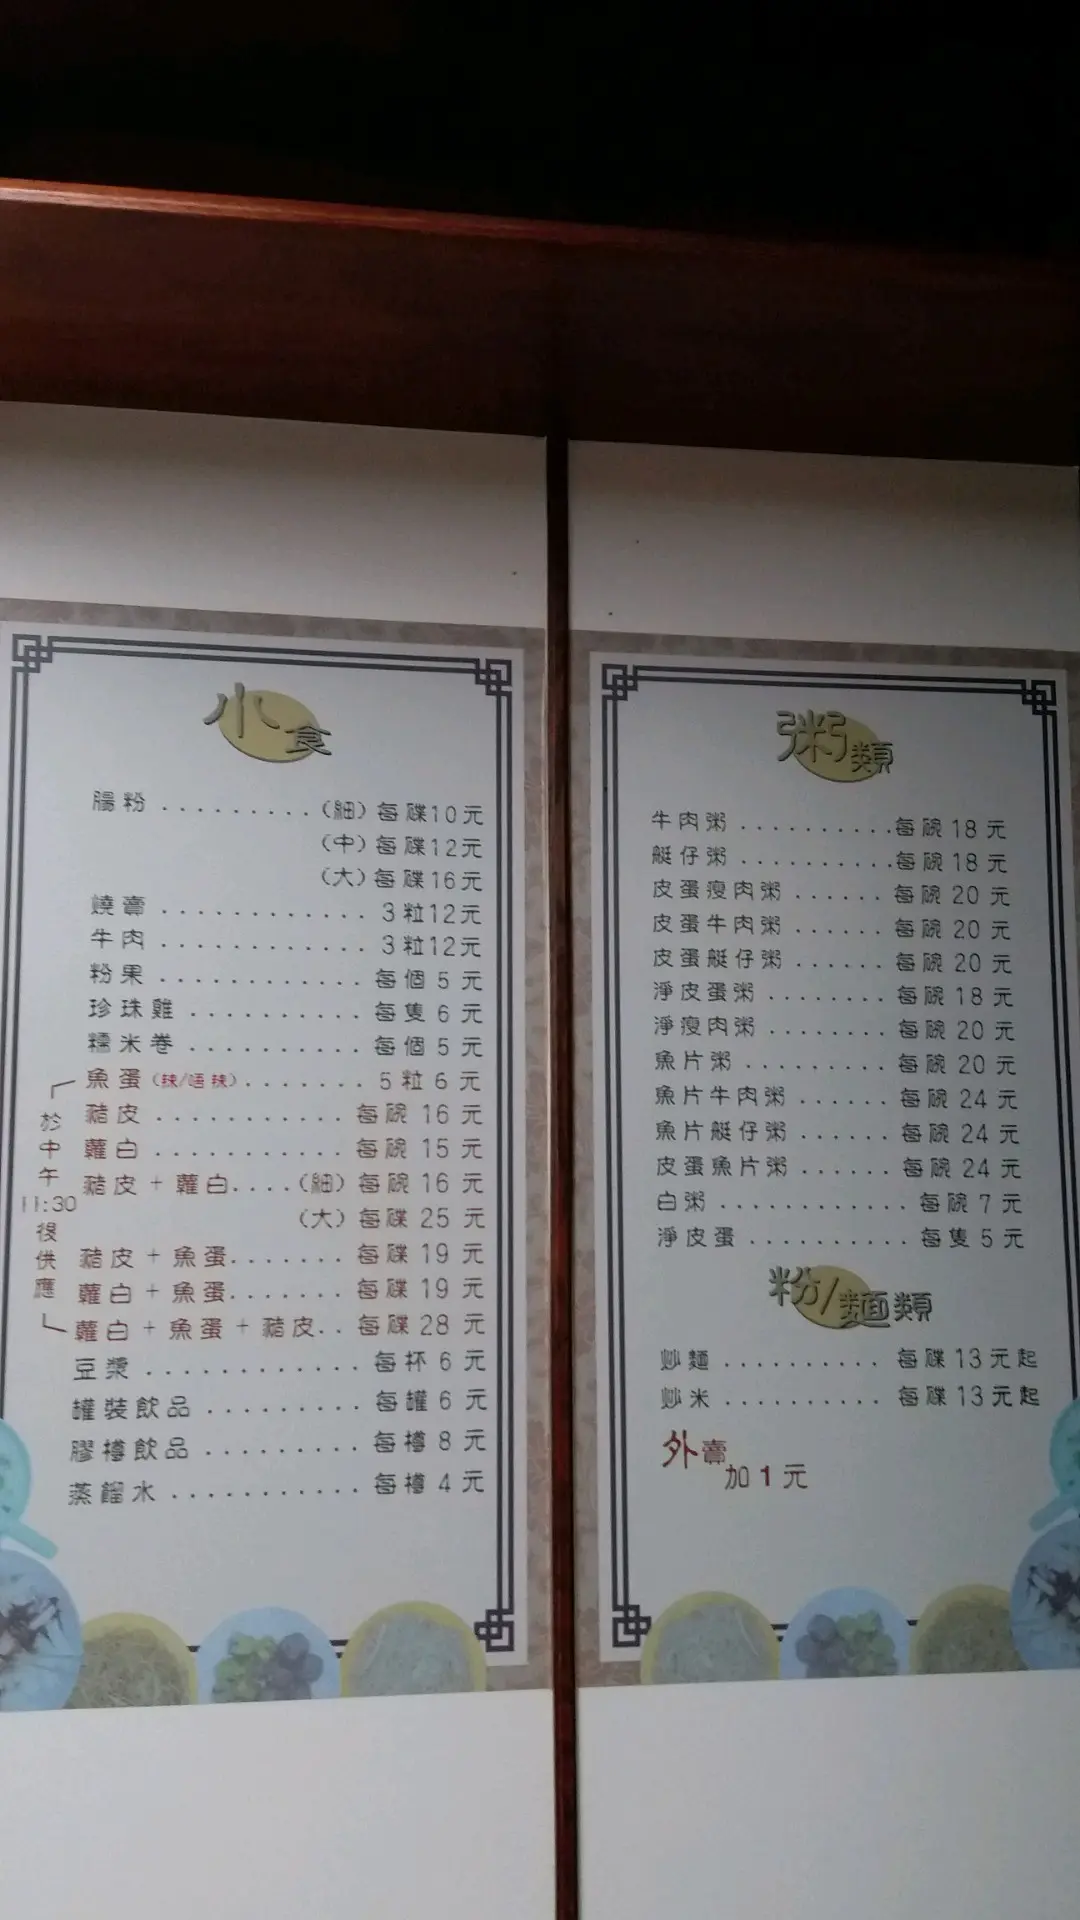 小食
腸粉 .........(細)每碟10元
(中)每碟12元
(大)每碟16元
燒賣 ............ 3粒12元
牛肉 ............ 3粒12元
粉果 ............ 每個 5 元
珍珠雞 .......... 每隻 6 元
糯米卷 .......... 每個 5 元
魚蛋(辣/唔辣)....... 5 粒 6 元
豬皮 ........... 每碗 16 元
蘿白 ........... 每碗 15 元
豬皮 + 蘿白....(細)每碗 16 元
(大)每碟 25 元
豬皮 + 魚蛋....... 每碟 19 元
蘿白 + 魚蛋....... 每碟 19 元
蘿白 + 魚蛋 + 豬皮.. 每碟 28 元
於中午11:30後供應
豆漿 ............ 每杯 6 元
罐裝飲品 ......... 每罐 6 元
膠樽飲品 ......... 每樽 8 元
蒸餾水 ........... 每樽 4 元
粥類
牛肉粥 ..........每碗 18 元
艇仔粥 ..........每碗 18 元
皮蛋瘦肉粥 ...... 每碗 20 元
皮蛋牛肉粥 ...... 每碗 20 元
皮蛋艇仔粥 ...... 每碗 20 元
淨皮蛋粥 ........ 每碗 18 元
淨瘦肉粥 ........ 每碗 20 元
魚片粥 ......... 每碗 20 元
魚片牛肉粥 ...... 每碗 24 元
魚片艇仔粥 ...... 每碗 24 元
皮蛋魚片粥 ...... 每碗 24 元
白粥 ............ 每碗 7 元
淨皮蛋 .......... 每隻 5 元
粉/麵類
炒麵 .......... 每碟 13 元起
炒米 .......... 每碟 13 元起
外賣
加 1 元